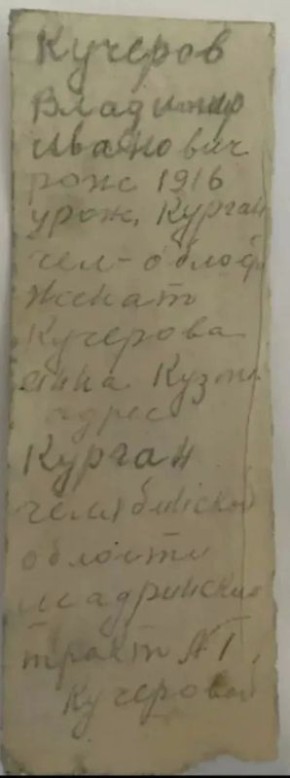 Кучеров
Владимир
Иванович
рож 1916
урож. Курган
чел-облас
Женат
Кучерова
Анна Кузм
адрес
Курган
челябинской
области
шадринский
тракт №1,
Кучеровой